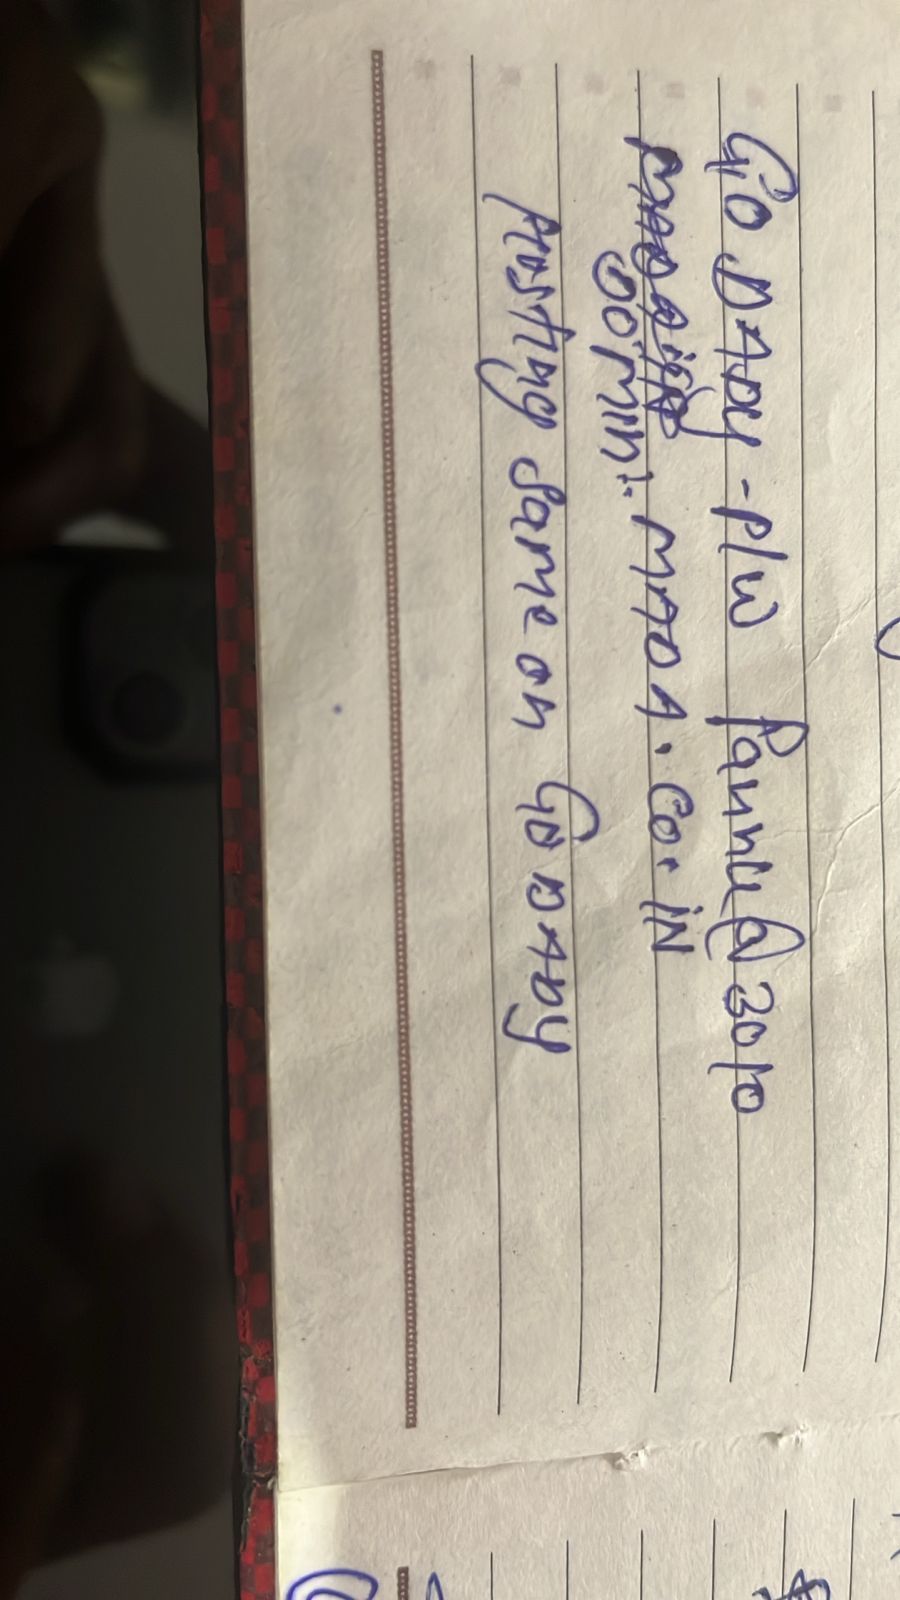 GO DADY - P/W Pannu@3010
MADA.CO.IN
DOMIN:
Hosting same on GODADY